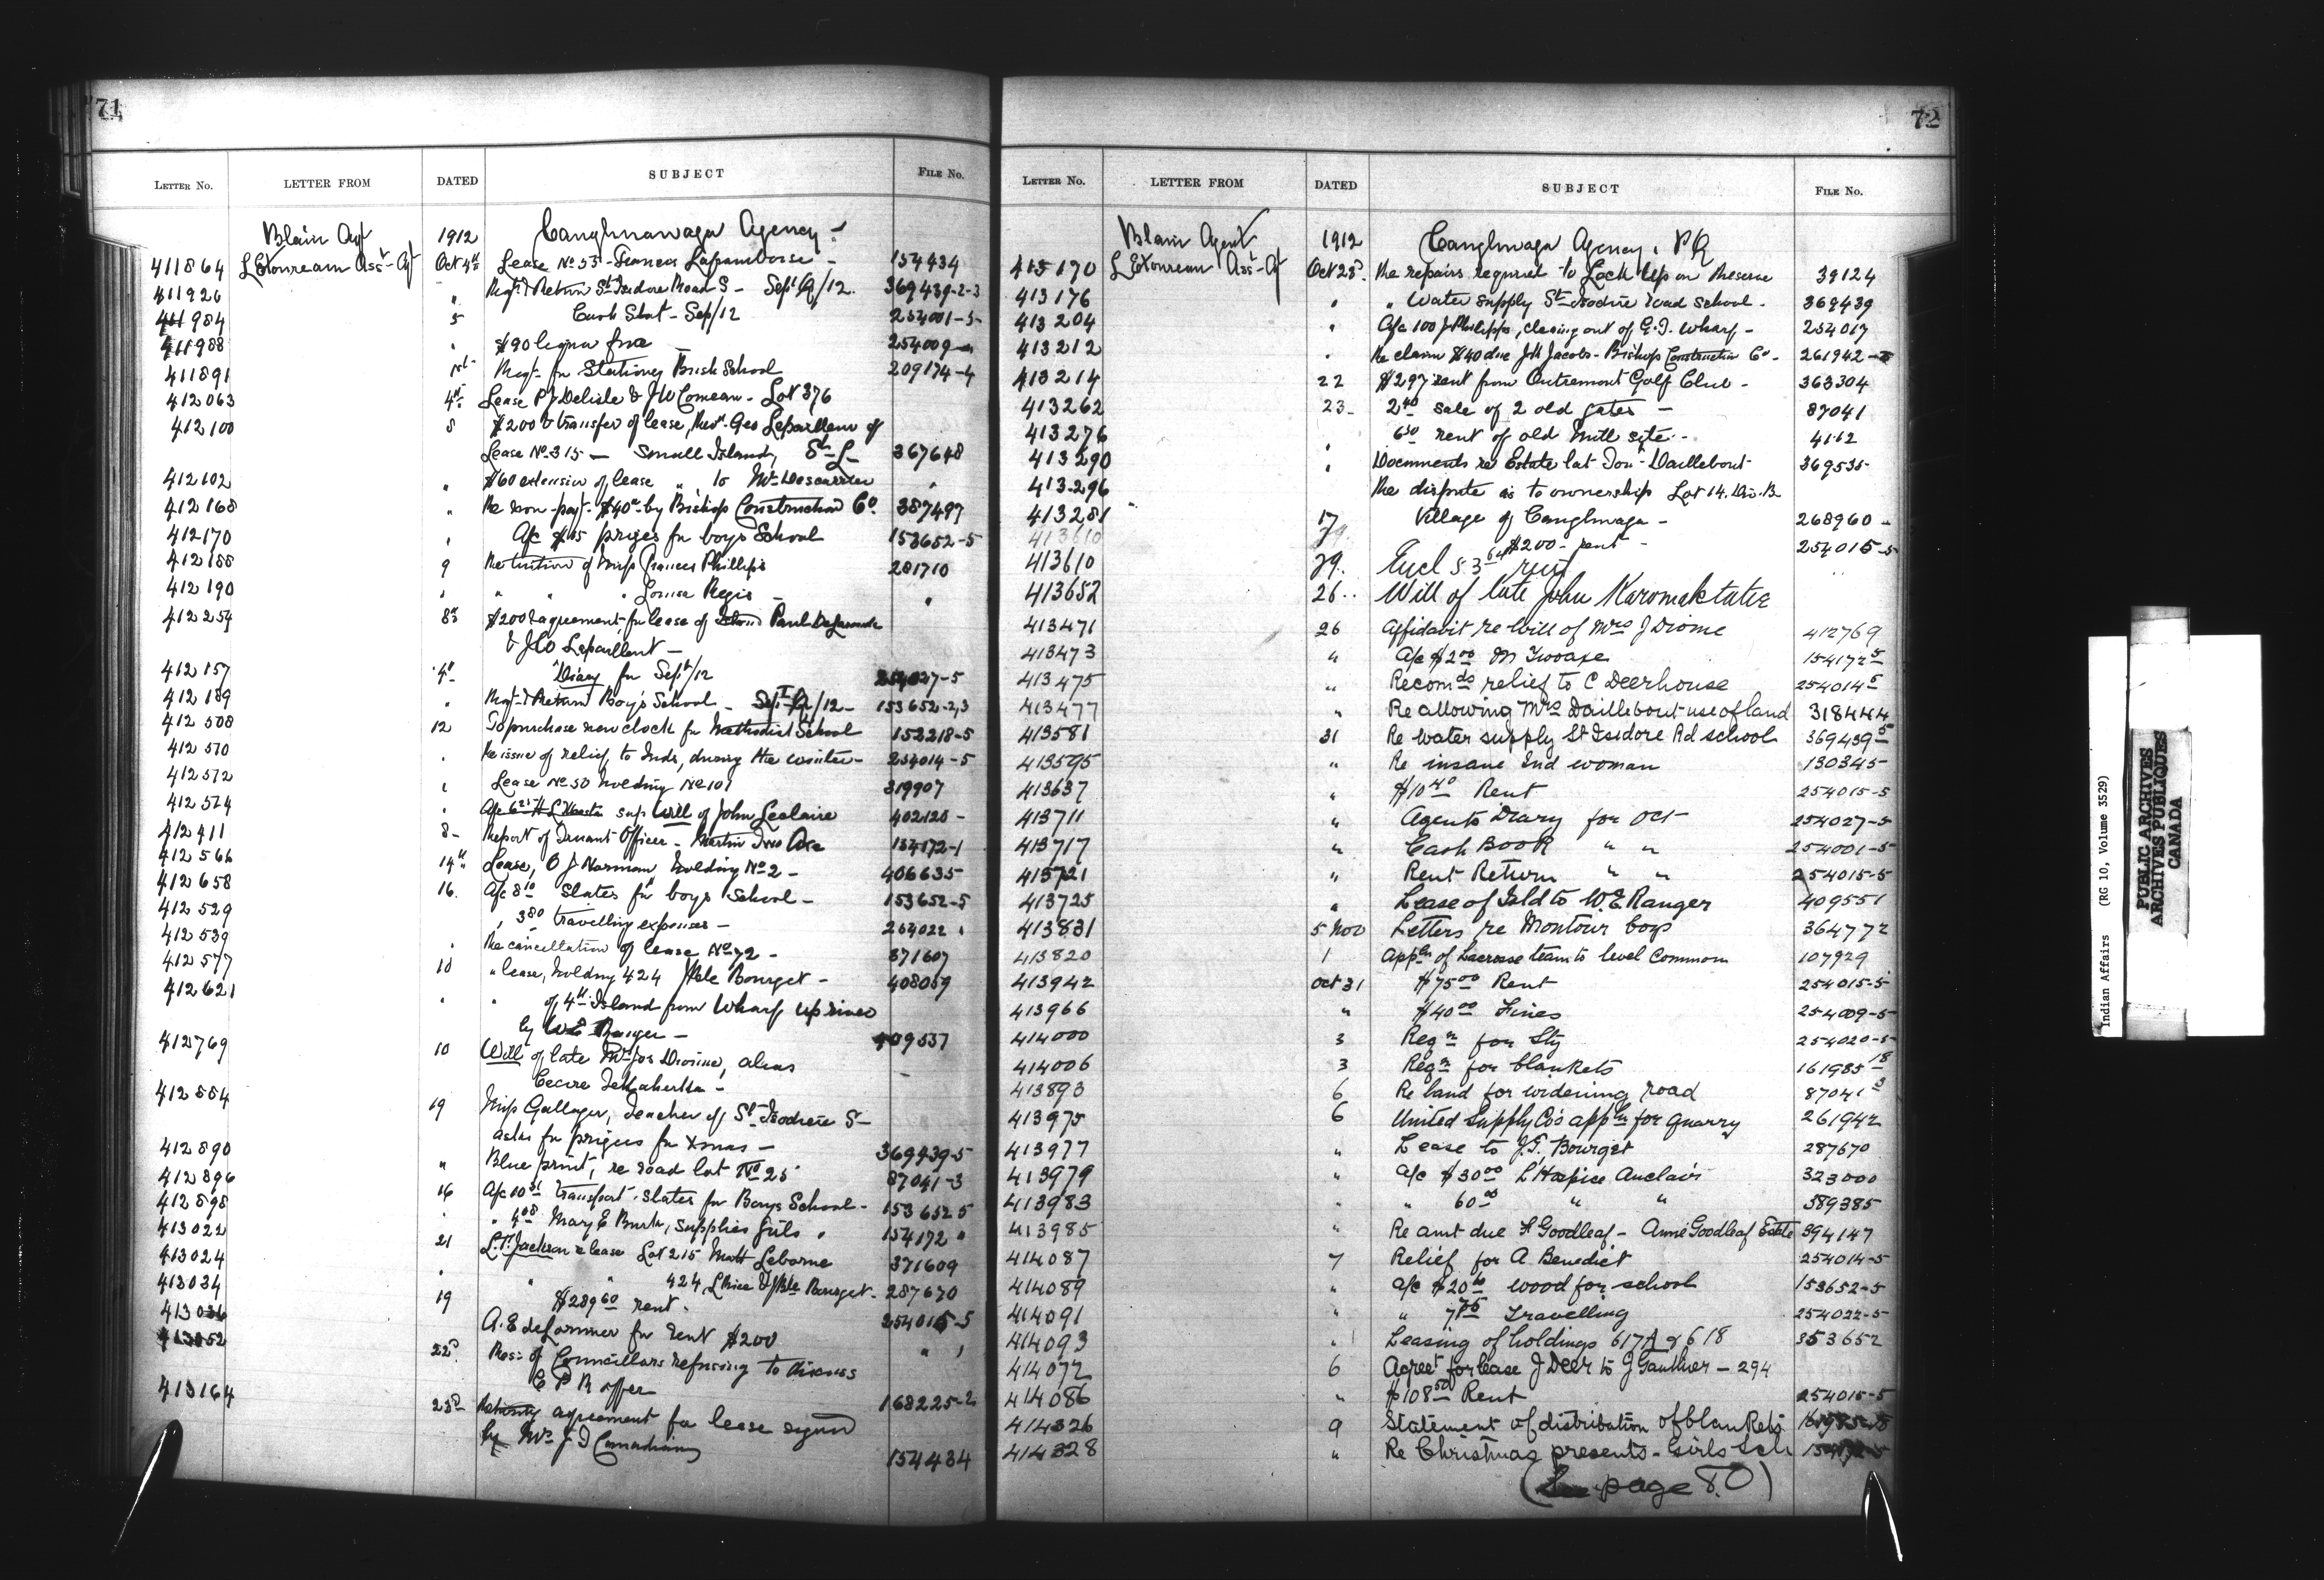 71
LETTER No. LETTER FROM DATED SUBJECT FILE No.
Blain Agt 1912 Caughnawaga Agency
411864 Asst Agt Oct 4th Lease No 53 - Frances Laframboise - 154434
411926 " Reqn & Return St Isidore Road S - Sept Qr/12. 369439-2-3
411984 5 Cash Stat - Sep/12 254001-5-
411988 " $90 liquor fine 254009
411891 1st Reqn for Stationery Brush School 209174-4
412063 4th Lease P J Delisle & J W Comeau - Lot 376
412100 8 $200 & transfer of lease, Geo Lepailleur of
Lease No 315 - Small Island, St L 367648
412102 " $60 extension of lease " to Mr "
412168 " Re non-payt $40 by Bishop Construction Co 387497
412170 " A/c $45 prizes for boys School 153652-5
412188 9 Re tuition of Miss Frances Phillips 281710
412190 " " " " Louisa Regis - "
412254 8th $200 & agreement for lease of Paul
& J Lepailleur -
412157 4th Diary for Sept/12 254027-5
412189 " Reqn & Return Boy's School - Sept Qr/12 - 153652-2,3
412508 12 To purchase new clock for Methodist School 152218-5
412570 " Re issue of relief, to Inds, during the winter - 254014-5
412572 " Lease No 50 holding No 101 319907
412574 " sup Will of John Leclaire 402120 -
412411 8 - Report of Truant Officer - Martin Two Axe 154172-1
412566 14th Lease, O J Norman holding No 2 - 406635
412658 16. A/c 8 10 Slates for boys School - 153652-5
412529 " 3 80 travelling expenses - 254022 "
412539 " Re cancellation of lease No 72 - 371607
412577 10 " lease, holding 424 Bourget - 408059
412621 " " of 4th Island from Wharf up river
by W E Ranger - 409537
412769 10 Will of late Mrs Jos Diome, alias
Cecire -
412554 19 Miss Gallager, Teacher of St Isodore S -
asks for prizes for Xmas - 369439-5
412890 " Blue print, re road lot No 25 87041-3
412896 16 A/c 10 51 transport. slates for Boys School - 153652 5
412898 " " 4 08 Mary E Burke, supplies Girls " 154172 "
413022 21 L. T. Jackson re lease Lot 215 Matt Leborne 371609
413024 " " " 424, Bourget - 287670
413034 19 $289 60 rent. 254015-5
413036 A. E for rent $200 " "
413052 22d Res: of Councillors refusing to discuss
C P R offer 168225-2
413164 23d agreement for lease signed
by Mrs J 154434
72
LETTER No. LETTER FROM DATED SUBJECT FILE No.
Blain Agent 1912 Caughnwaga Agency, P Q
413170 Asst Agt Oct 23d. Re repairs required to Lock Up on Reserve 39124
413176 " " Water supply St Isodore Road School - 369439
413204 " A/c 100 J Phillips, clearing out of G. T. Wharf - 254017
413212 " Re claim $40 due J M Jacobs - Bishop Construction Co - 261942
413214 22 $297 rent from Outremont Golf Club - 363304
413262 23 - 2 40 sale of 2 old gates - 87041
413276 " 6 50 rent of old Mill site - 4162
413290 " Documents re Estate lat Daillebout 369535
413296 Re dispute as to ownership Lot 14. Div. B
413281 17 Village of Caughnwaga - 268960 -
413610 29. $200 - rent - 254015-5
413610 29. Encl rent
413652 26.. Will of late John
413471 26 Affidavit re Will of Mrs J Diome 412769
413473 " A/c $2 00 M Twoaxe 154172 5
413475 " Recomds relief to C Deerhouse 254014 5
413477 " Re allowing Mrs Daillebout use of land 318444
413581 31 Re water supply St Isidore Rd school 369439 5
413595 " Re insane Ind woman 130345-
413637 " $10 40 Rent 254015-5
413711 " Agents Diary for Oct 254027-5
413717 " Cash Book " " 254001-5
413721 " Rent Return " " 254015-5
413725 " Lease of Isld to W. E. Ranger 409551
413831 5 Nov Letters re Montour boys 364772
413820 1 Appln of Lacrosse team to level Common 107929
413942 Oct 31 $75 00 Rent 254015-5
413966 " $40 00 Fines 254009-5
414000 3 Reqn for Sty 254020-5
414006 3 Reqn for blankets 161985 18
413893 6 Re land for widening road 87041 3
413975 6 United Supply Co's appln for quarry 261942
413977 " Lease to J. T. Bourget 287670
413979 " A/c $30 00 L'Hospice Auclair 323000
413983 " " 60 00 " " 389385
413985 " Re amt due F Goodleaf - Annie Goodleaf Estate 394147
414087 7 Relief for A. Benedict 254014-5
414089 " A/c $20 wood for school 153652-5
414091 " " 7 75 Travelling 254022-5
414093 " Leasing of holdings 617A & 618 353652
414072 6 Agreet for lease J Deer to J Gauthier - 294
414086 " $108 50 Rent 254015-5
414326 9 Statement of distribution of blankets
414328 " Re Christmas presents - Girls Sch
(See page 80)
Indian Affairs (RG 10, Volume 3529)
PUBLIC ARCHIVES
ARCHIVES PUBLIQUES
CANADA